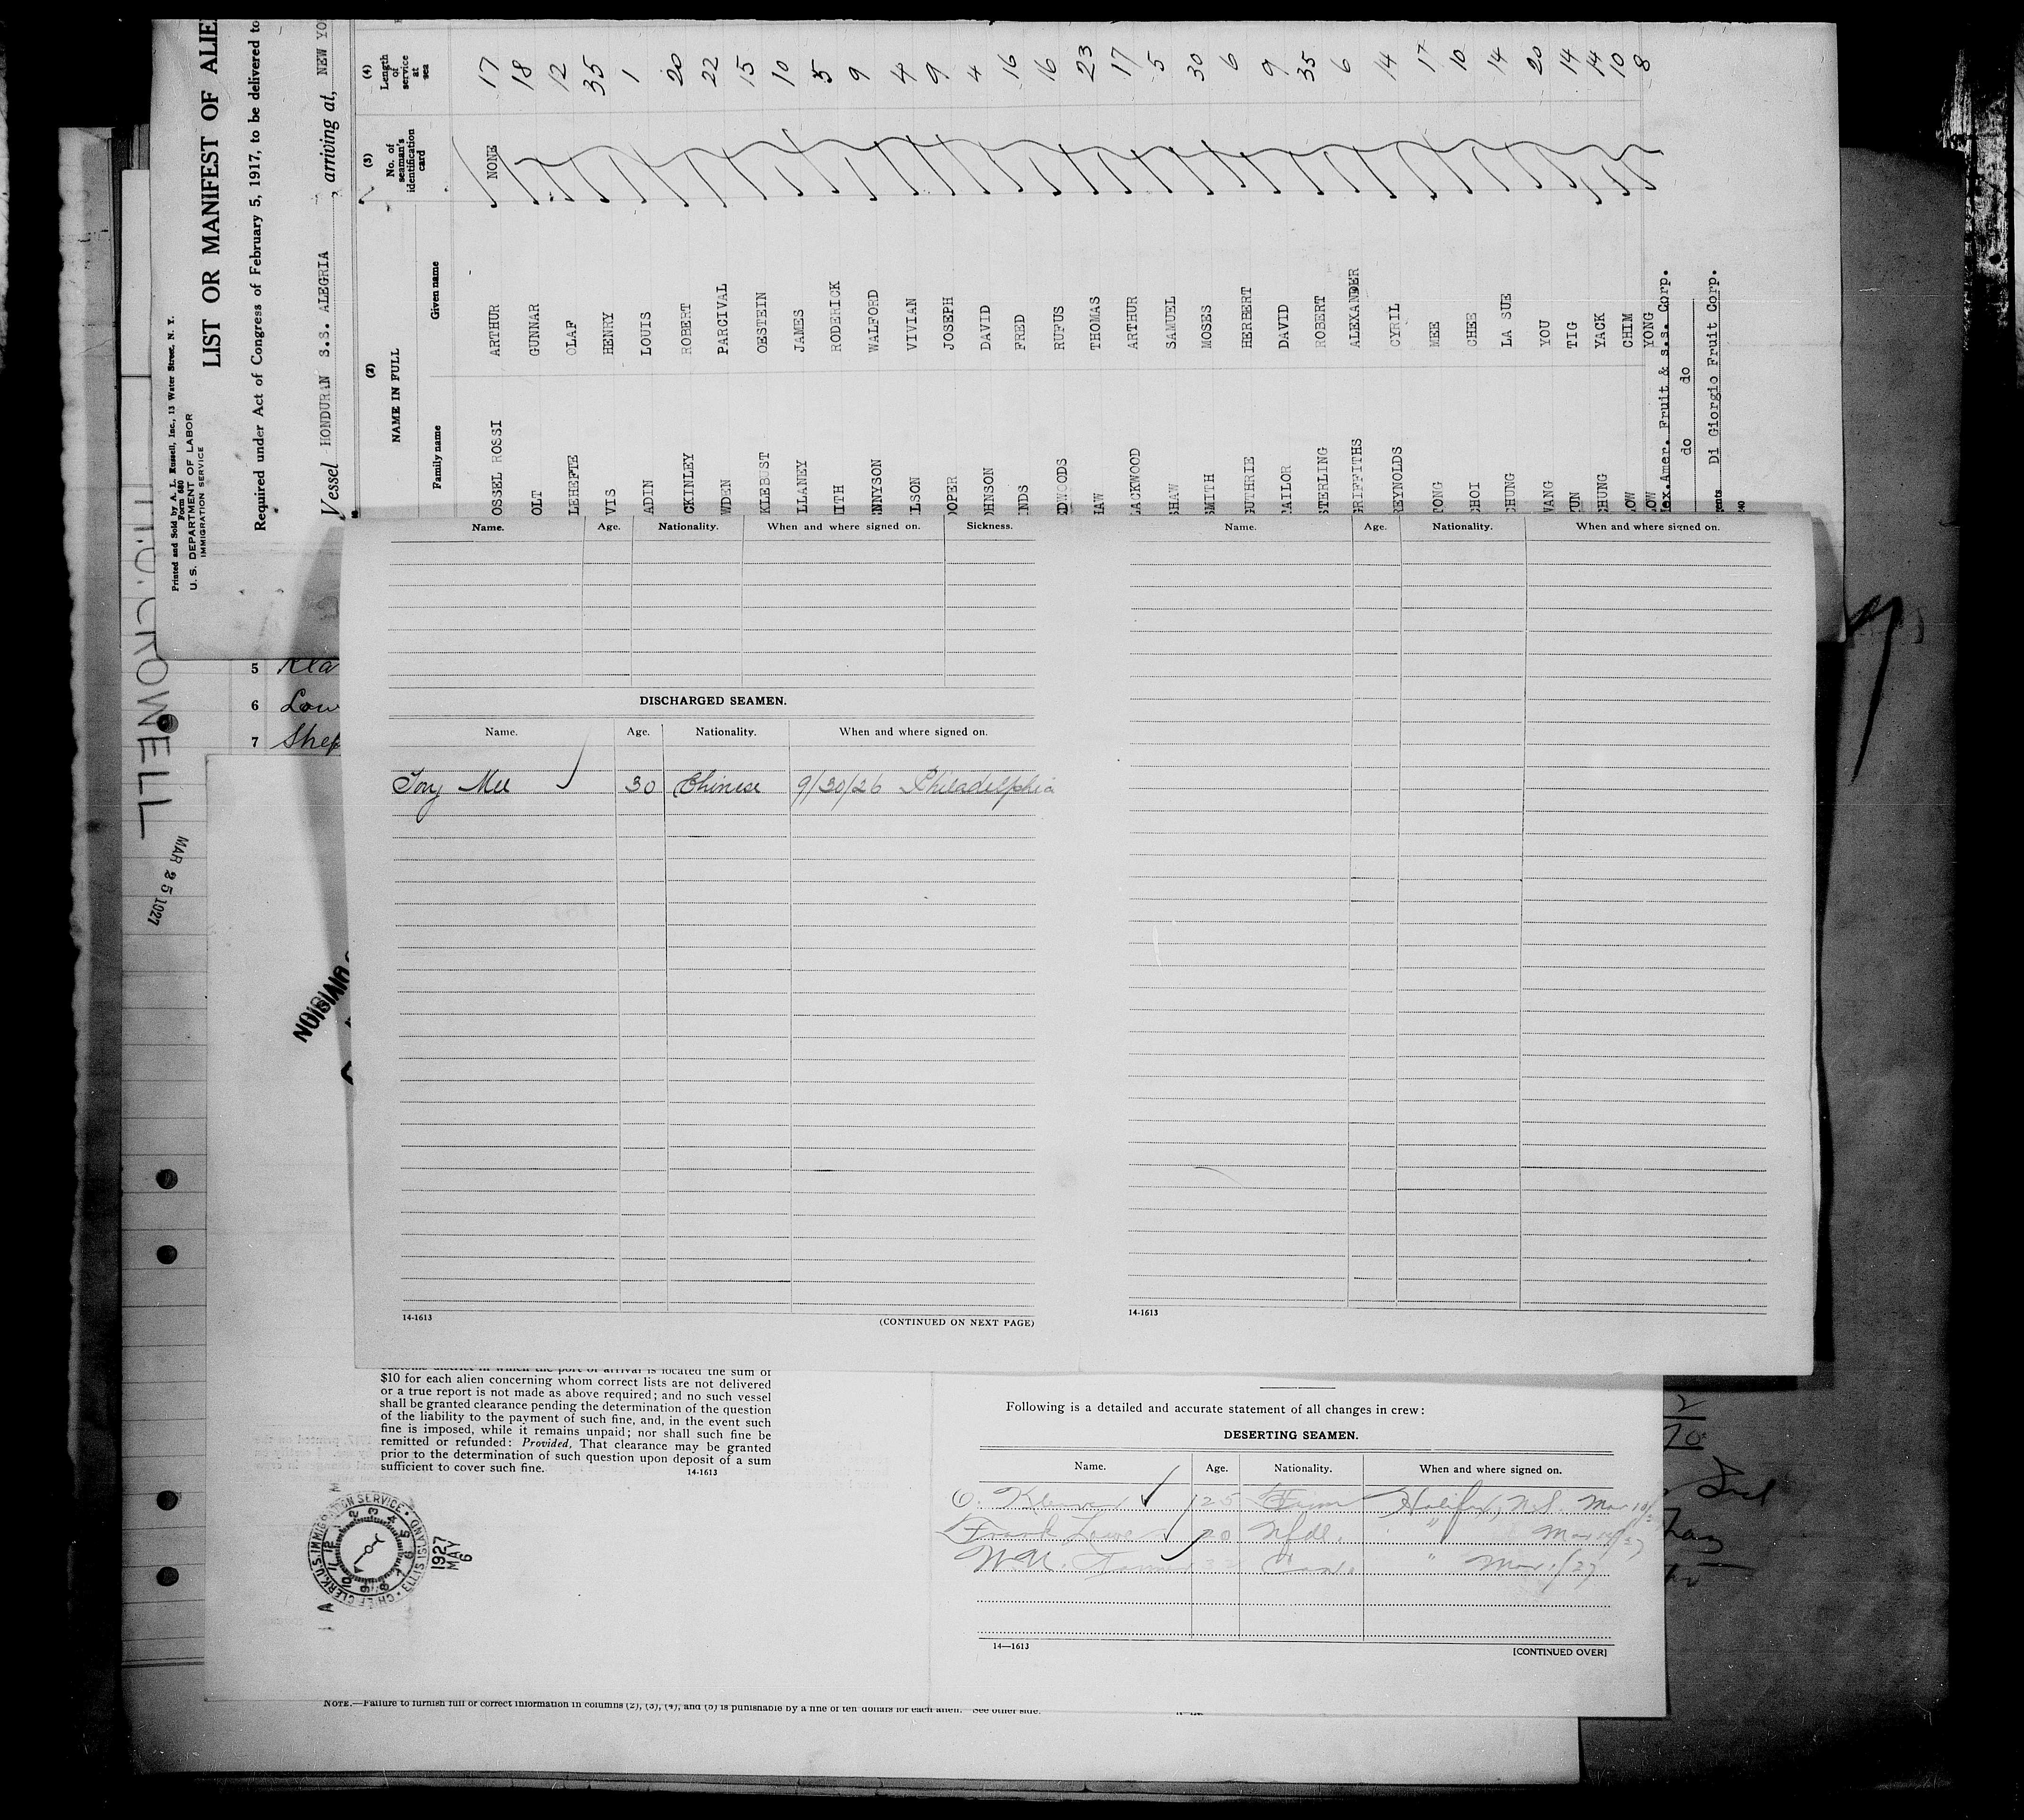 Printed and Sold by A. L. Russell, Inc., 13 Water Street, N. Y.
Form 680
U. S. DEPARTMENT OF LABOR
IMMIGRATION SERVICE
LIST OR MANIFEST OF ALIE
Required under Act of Congress of February 5, 1917, to be delivered to
Vessel HONDURAN S.S. ALEGRIA, arriving at, NEW YO
(2) (3) (4)
NAME IN FULL No. of seaman's identification card Length of service at sea
Family name Given name
OSSEL ROSSI ARTHUR NONE 17
OLT GUNNAR 18
LEHEFTE OLAF 12
VIS HENRY 35
ADIN LOUIS 1
CKINLEY ROBERT 20
WDEN PARCIVAL 22
KLEBUST OESTEIN 15
LLANEY JAMES 10
ITH RODERICK 5
NNYSON WALFORD 9
LSON VIVIAN 4
OOPER JOSEPH 9
OHNSON DAVID 4
NDS FRED 16
DWOODS RUFUS 16
HAW THOMAS 23
LACKWOOD ARTHUR 17
SHAW SAMUEL 5
SMITH MOSES 30
GUTHRIE HERBERT 6
AILOR DAVID 9
STERLING ROBERT 35
GRIFFITHS ALEXANDER 6
EYNOLDS CYRIL 14
TONG MEE 17
CHOI CHEE 10
CHUNG LA SUE 14
WANG YOU 20
YUN TIG 14
CHUNG YACK 14
LOW CHIM 10
LOW YONG 8
Mex.Amer. Fruit & S.S. Corp.
do do
ents Di Giorgio Fruit Corp.
CROWELL
MAR 25 1927
5 Kla
6 Low
7 Shep
DIVISION
Name. Age. Nationality. When and where signed on. Sickness.
DISCHARGED SEAMEN.
Name. Age. Nationality. When and where signed on.
Tong Mee 30 Chinese 9/30/26 Philadelphia
14-1613
(CONTINUED ON NEXT PAGE)
Name. Age. Nationality. When and where signed on.
14-1613
customs district in which the port of arrival is located the sum of
$10 for each alien concerning whom correct lists are not delivered
or a true report is not made as above required; and no such vessel
shall be granted clearance pending the determination of the question
of the liability to the payment of such fine, and, in the event such
fine is imposed, while it remains unpaid; nor shall such fine be
remitted or refunded: Provided, That clearance may be granted
prior to the determination of such question upon deposit of a sum
sufficient to cover such fine.
14-1613
CHIEF CLERK, U.S. IMMIGRATION SERVICE • ELLIS ISLAND
1927
MAY
6
Following is a detailed and accurate statement of all changes in crew:
DESERTING SEAMEN.
Name. Age. Nationality. When and where signed on.
O. 25 Halifax, N.S. Mar 10/
Frank Lowe 20 Nfdl. " Mar 10/27
W. " Mar. /27
14—1613
[CONTINUED OVER]
NOTE.—Failure to furnish full or correct information in columns (2), (3), (4), and (5) is punishable by a fine of ten dollars for each alien. See other side.